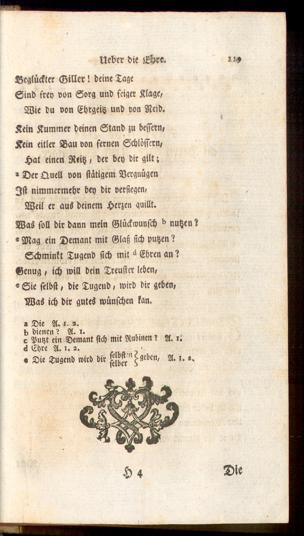 Ueber die Ehre. 119
Beglückter Giller! deine Tage
Sind frey von Sorg und feiger Klage,
Wie du von Ehrgeitz und von Neid.
Kein Kummer deinen Stand zu bessern,
Kein eitler Bau von fernen Schlössern,
Hat einen Reitz, der bey dir gilt;
a Der Quell von stätigem Vergnügen
Ist nimmermehr bey dir versiegen,
Weil er aus deinem Herzen quillt.
Was soll dir dann mein Glückwunsch b nutzen?
c Mag ein Demant mit Glaß sich putzen?
Schminkt Tugend sich mit d Ehren an?
Genug, ich will dein Treuster leben,
e Sie selbst, die Tugend, wird dir geben,
Was ich dir gutes wünschen kan.
a Die A. 1. 2.
b dienen? A. 1.
c Putzt ein Demant sich mit Rubinen? A. 1.
d Ehre A. 1. 2.
e Die Tugend wird dir selbsten geben, A. 1. 2.
selber
H 4 Die